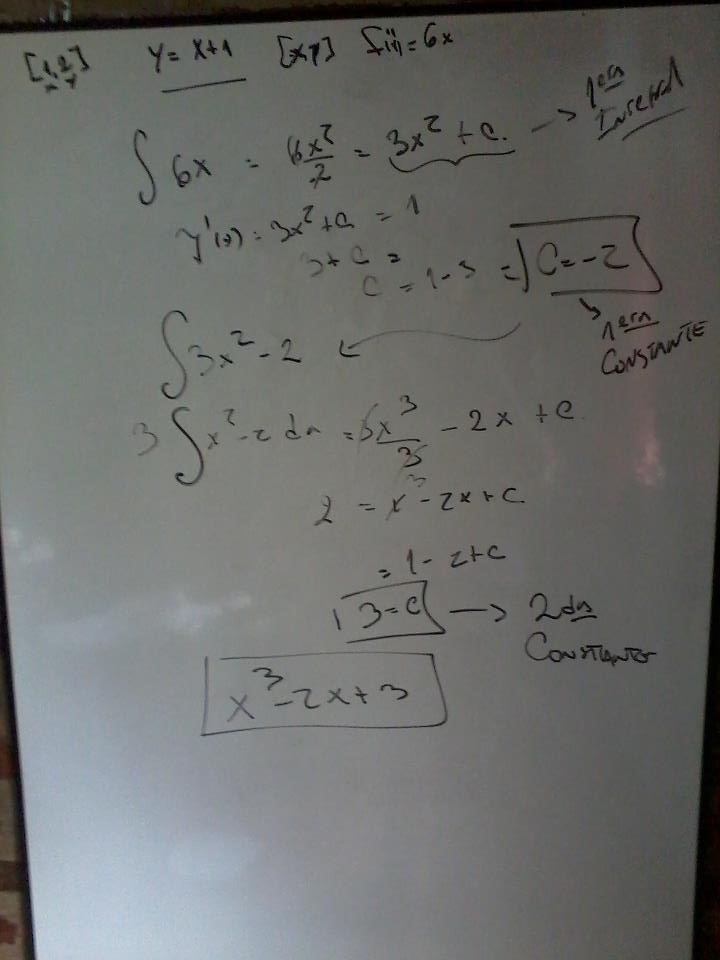 [1,2] y = x+1 [x,y] f''(x) = 6x
x y
∫ 6x = 6x²/2 = 3x² + C. → 1era Integral
y'(x) = 3x² + C = 1
3 + C =
C = 1 - 3 = C = -2
1era CONSTANTE
∫ 3x² - 2 ←
3 ∫ x² - 2 dx = 3x³/3 - 2x + C
2 = x³ - 2x + C
= 1 - 2 + C
3 = C → 2da CONSTANTE
x³ - 2x + 3